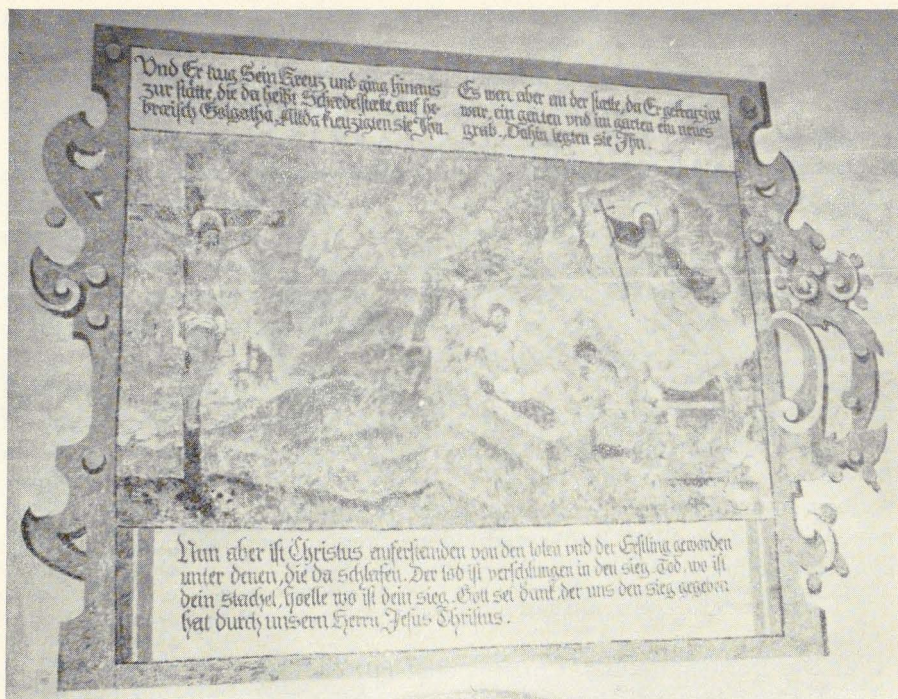 Vnd Er trug Sein Kreuz und ging hinaus
zur stätte, die da heißt Schedelstaete, auf he-
braeisch Golgatha. Allda kreuzigten sie Ihn.
Es war aber an der staette, da Er gekreuzigt
war, ein garten vnd im garten ein neues
grab. Dahin legten sie Ihn.
Nun aber ist Christus auferstanden von den toten vnd der Erstling geworden
unter denen, die da schlafen. Der tod ist verschlungen in den sieg. Tod, wo ist
dein stachel, Hoelle wo ist dein sieg. Gott sei dank, der uns den sieg gegeben
hat durch unsern Herrn Jesus Christus.